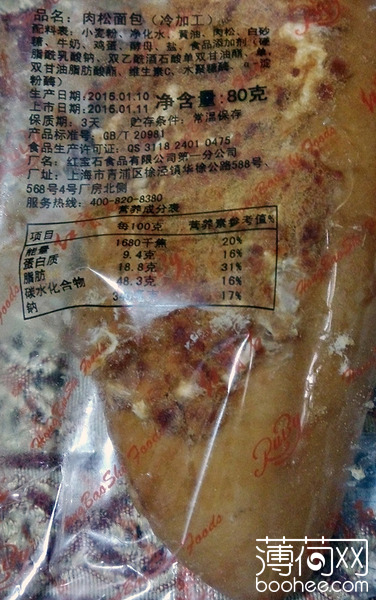 品名：肉松面包（冷加工）
配料表：小麦粉、净化水、黄油、肉松、白砂
糖、牛奶、鸡蛋、酵母、盐、食品添加剂（硬
脂酰乳酸钠、双乙酰酒石酸单双甘油酯、单，
双甘油脂肪酸酯、维生素C、木聚糖酶、α-淀
粉酶）
生产日期：2015.01.10 净含量：80克
上市日期：2015.01.11
保质期：3天 贮存条件：常温保存
产品标准号：GB/T 20981
食品生产许可证：QS 3118 2401 0475
厂名：红宝石食品有限公司第一分公司
厂址：上海市青浦区徐泾镇华徐公路588号、
568号4号厂房北侧
服务热线：400-820-8380
营养成分表
项目 每100克 营养素参考值%
能量 1680千焦 20%
蛋白质 9.4克 16%
脂肪 18.8克 31%
碳水化合物 48.3克 16%
钠 17%
Ruby
HongBaoShi Foods
薄荷网
boohee.com